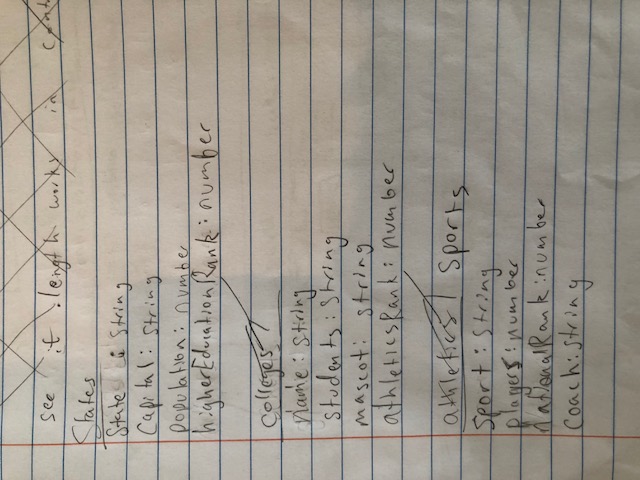 see if .length works in
States
State : string
Capital: string
population: number
higherEducationRank: number
colleges
name: string
students: string
mascot: string
athleticsRank: number
athletics Sports
Sport: string
players: number
nationalRank: number
coach: string